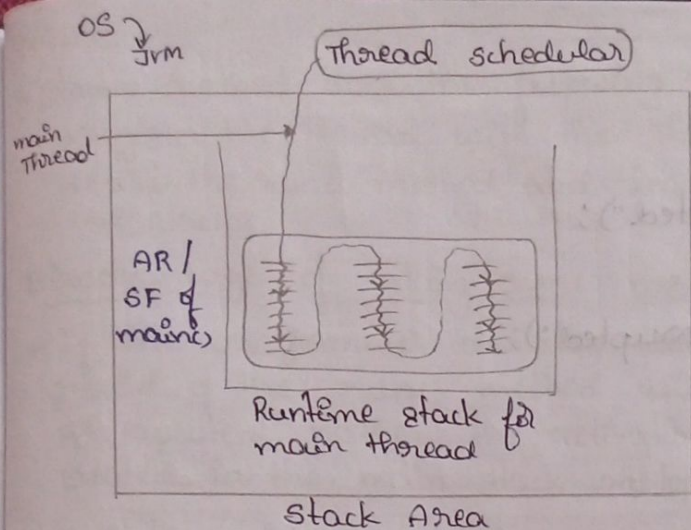 OS
Jvm
Thread schedular
main
Thread
AR /
SF of
main()
Runtime stack for
main thread
Stack Area